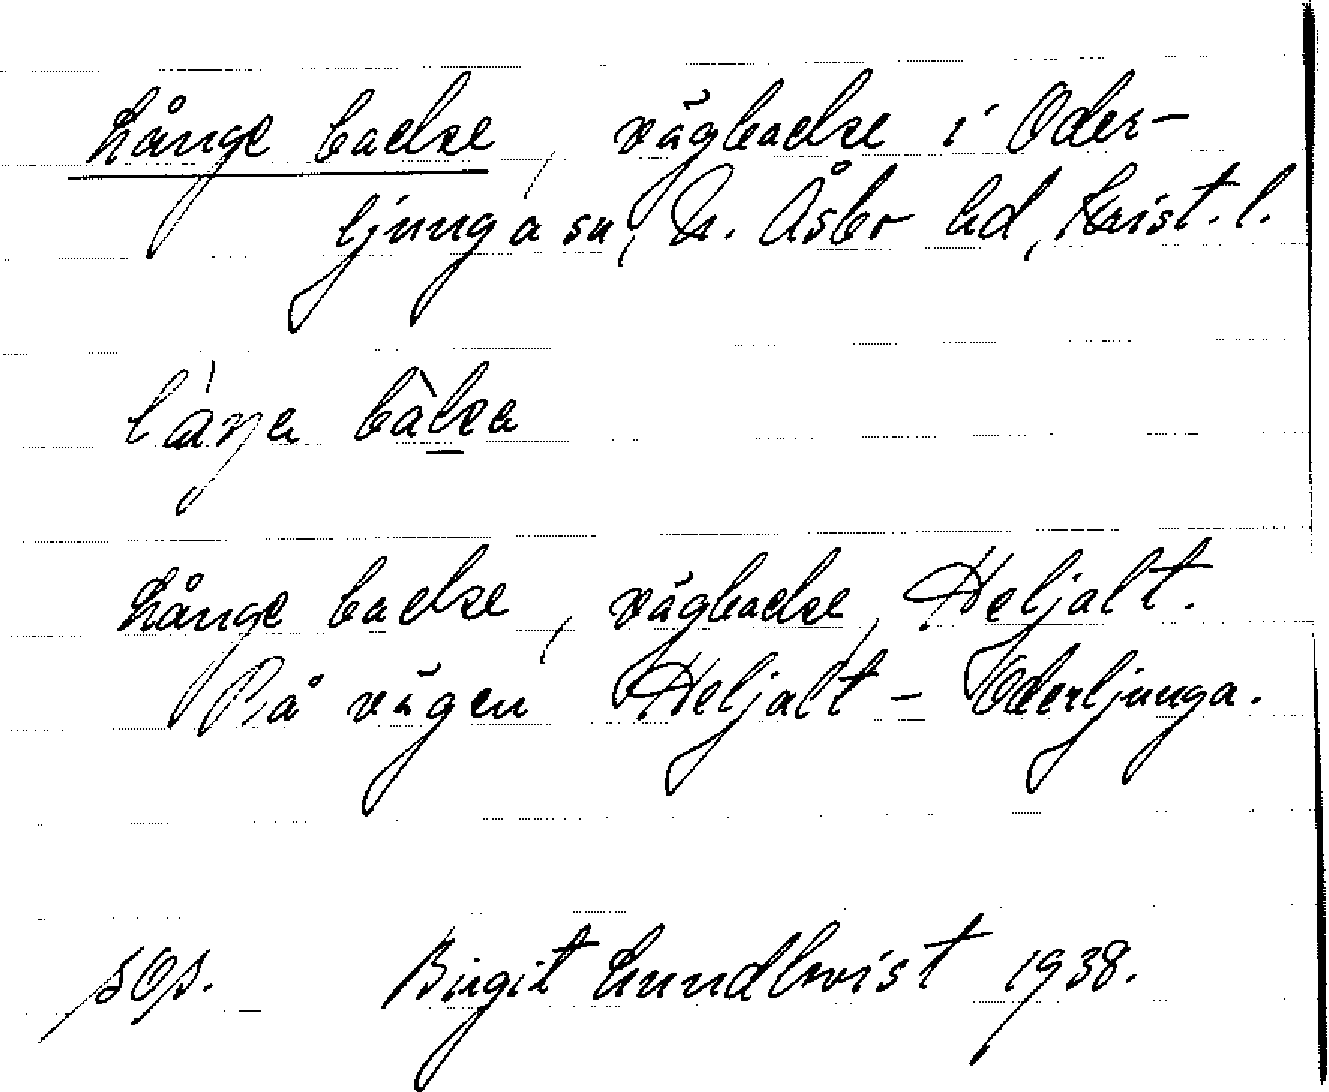 Långe backe, vägbacke i Oder-
ljunga sn, N. Åsbo hd, Krist. l.
Långe backe, vägbacke, Heljalt.
På vägen Heljalt – Oderljunga.
sOs. Birgit Lundkvist 1938.